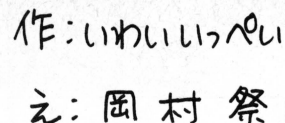 作：いわいいっぺい
え：岡村祭